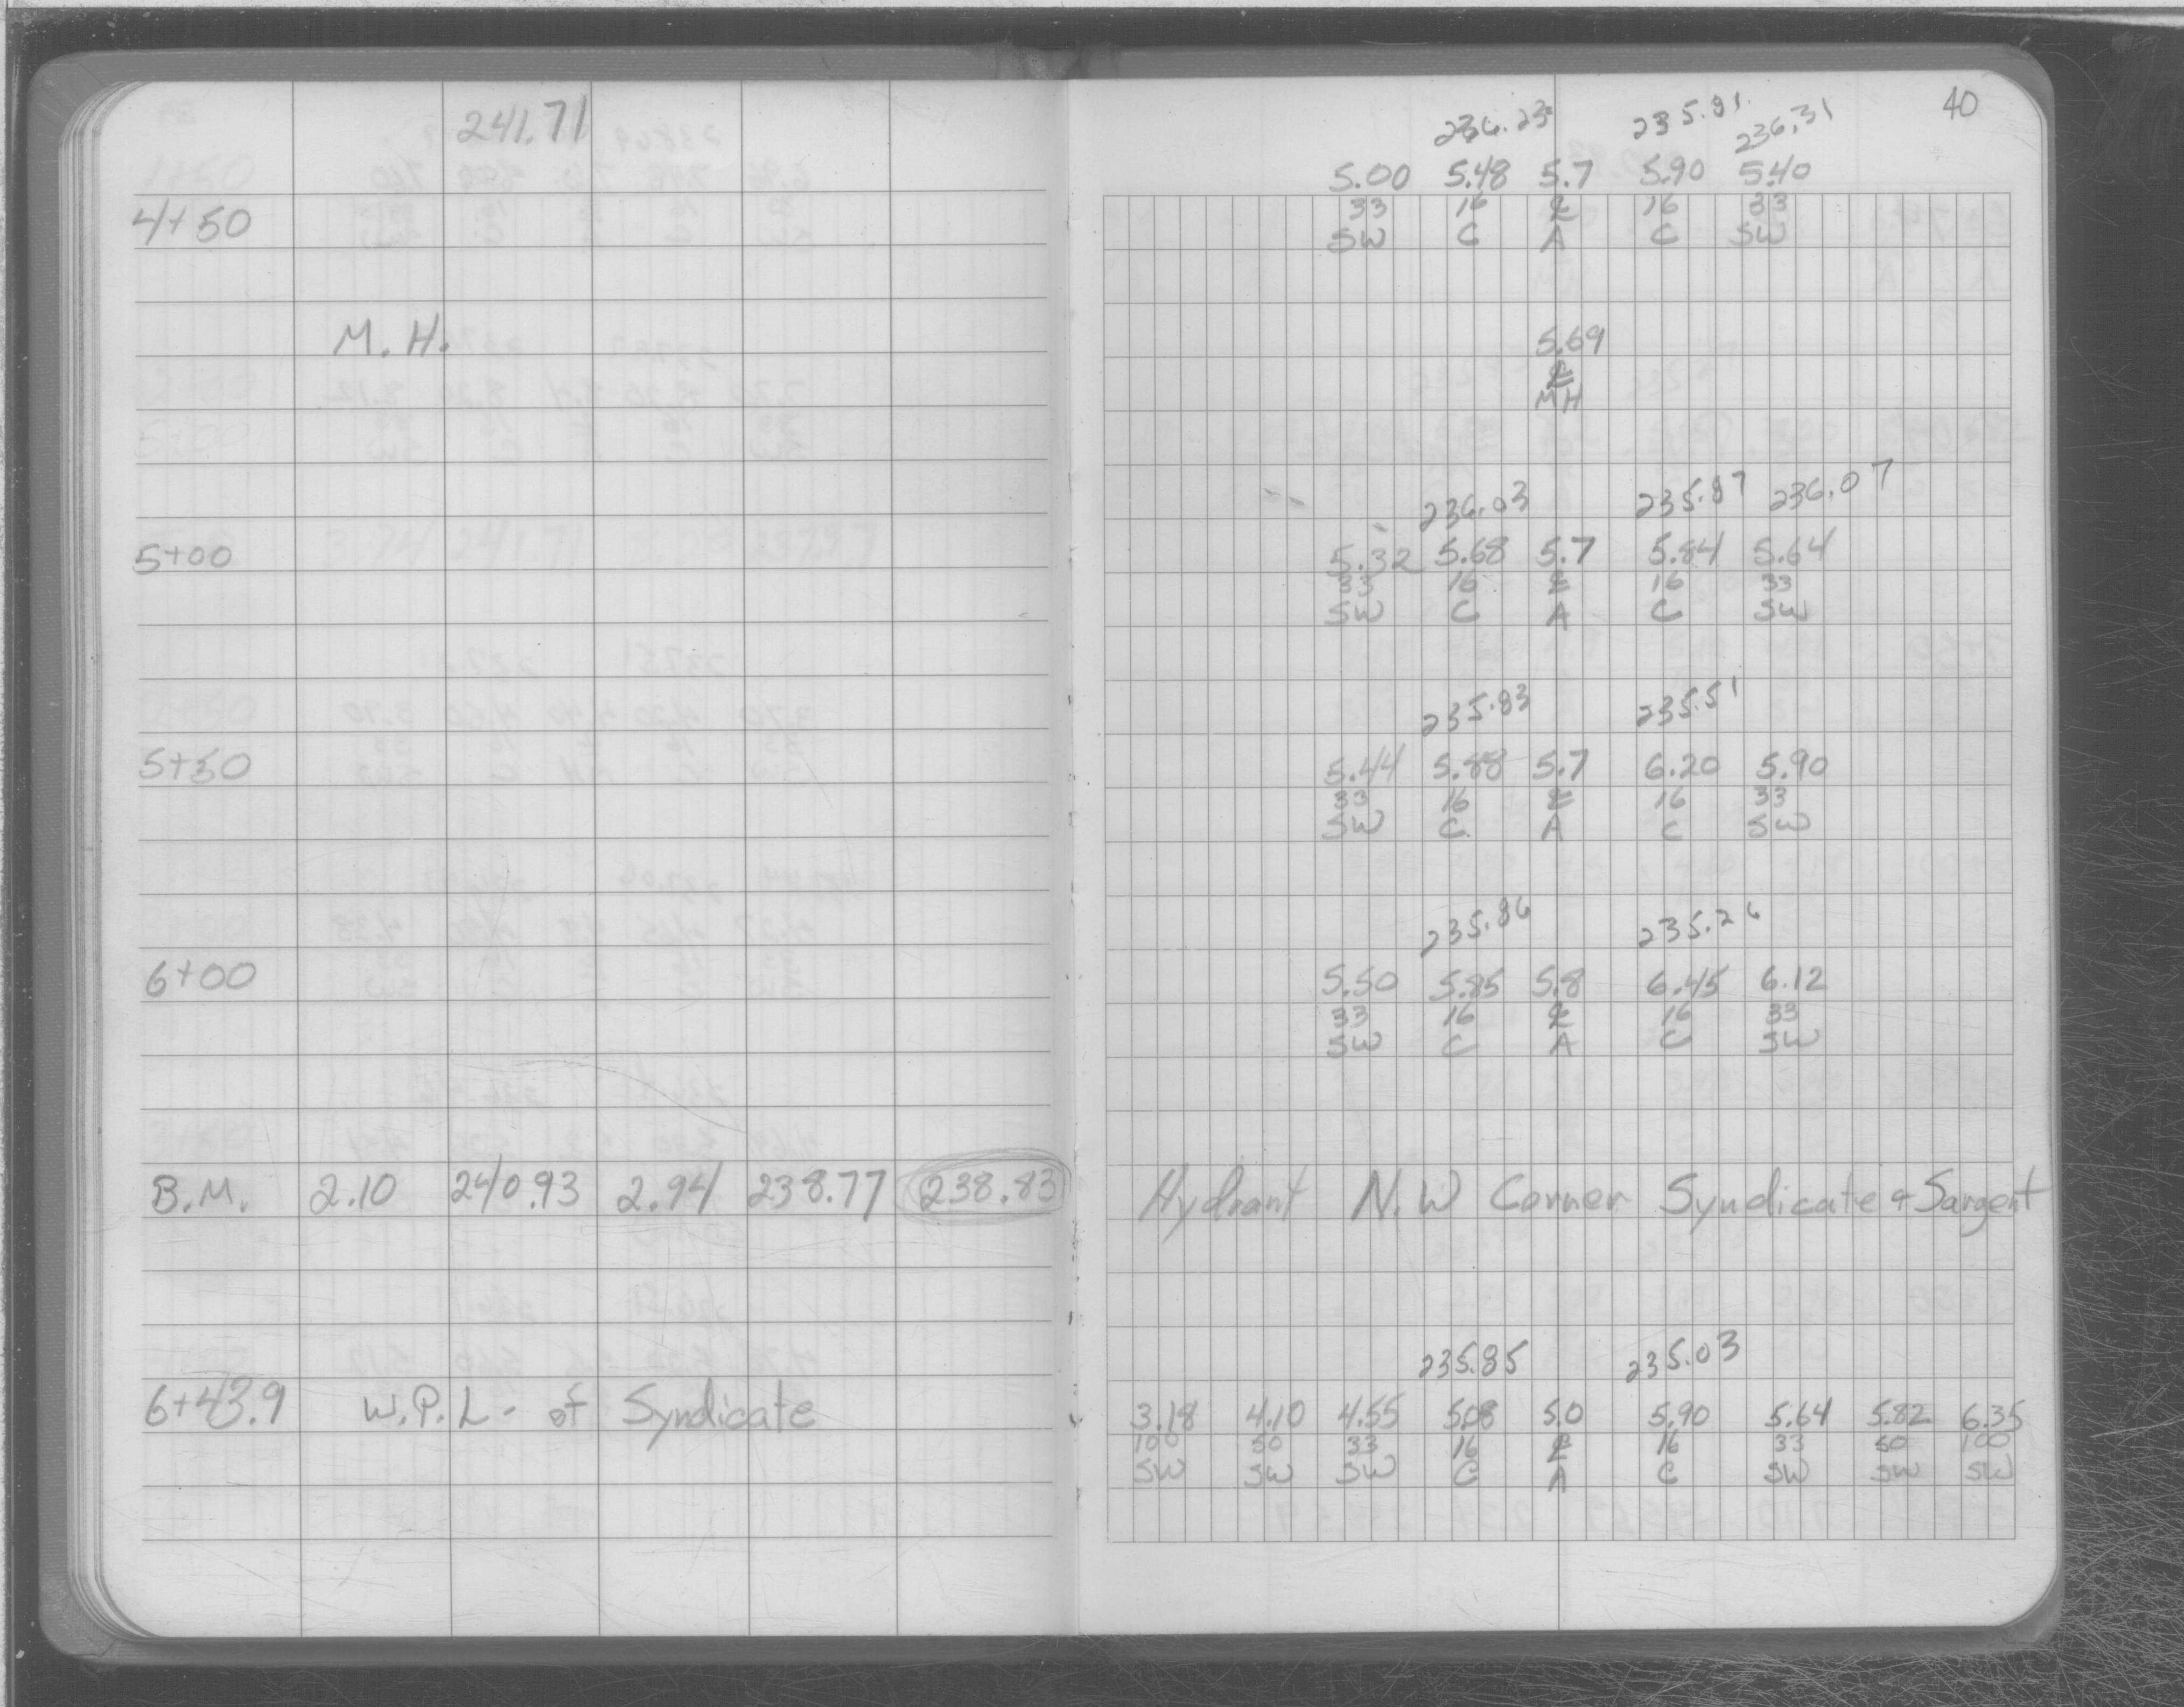 40
241.71
236.23 235.81 236.31
5.00 5.48 5.7 5.90 5.40
4+50 33 16 ℄ 16 33
SW C A C SW
M. H. 5.69
℄
MH
236.03 235.87 236.07
5+00 5.32 5.68 5.7 5.84 5.64
33 16 ℄ 16 33
SW C A C SW
235.83 235.51
5+50 5.44 5.88 5.7 6.20 5.90
33 16 ℄ 16 33
SW C A C SW
235.86 235.26
6+00 5.50 5.85 5.8 6.45 6.12
33 16 ℄ 16 33
SW C A C SW
B.M. 2.10 240.93 2.94 238.77 238.83 Hydrant N.W Corner Syndicate & Sargent
235.85 235.03
6+43.9 W.P.L. of Syndicate 3.18 4.10 4.55 5.08 5.0 5.90 5.64 5.82 6.35
100 50 33 16 ℄ 16 33 50 100
SW SW SW C A C SW SW SW